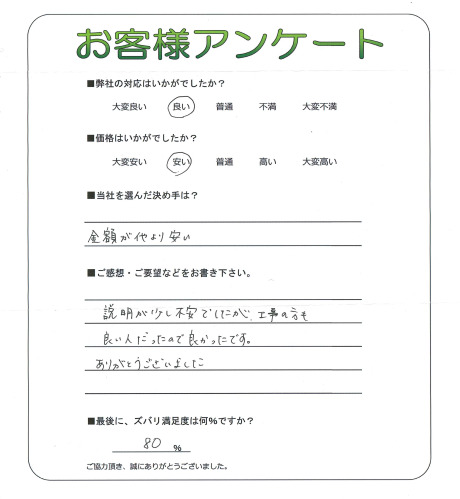 お客様アンケート
■弊社の対応はいかがでしたか？
大変良い 良い 普通 不満 大変不満
■価格はいかがでしたか？
大変安い 安い 普通 高い 大変高い
■当社を選んだ決め手は？
金額が他より安い
■ご感想・ご要望などをお書き下さい。
説明が少し不安でしたが工事の方も
良い人だったので良かったです。
ありがとうございました
■最後に、ズバリ満足度は何％ですか？
80 ％
ご協力頂き、誠にありがとうございました。